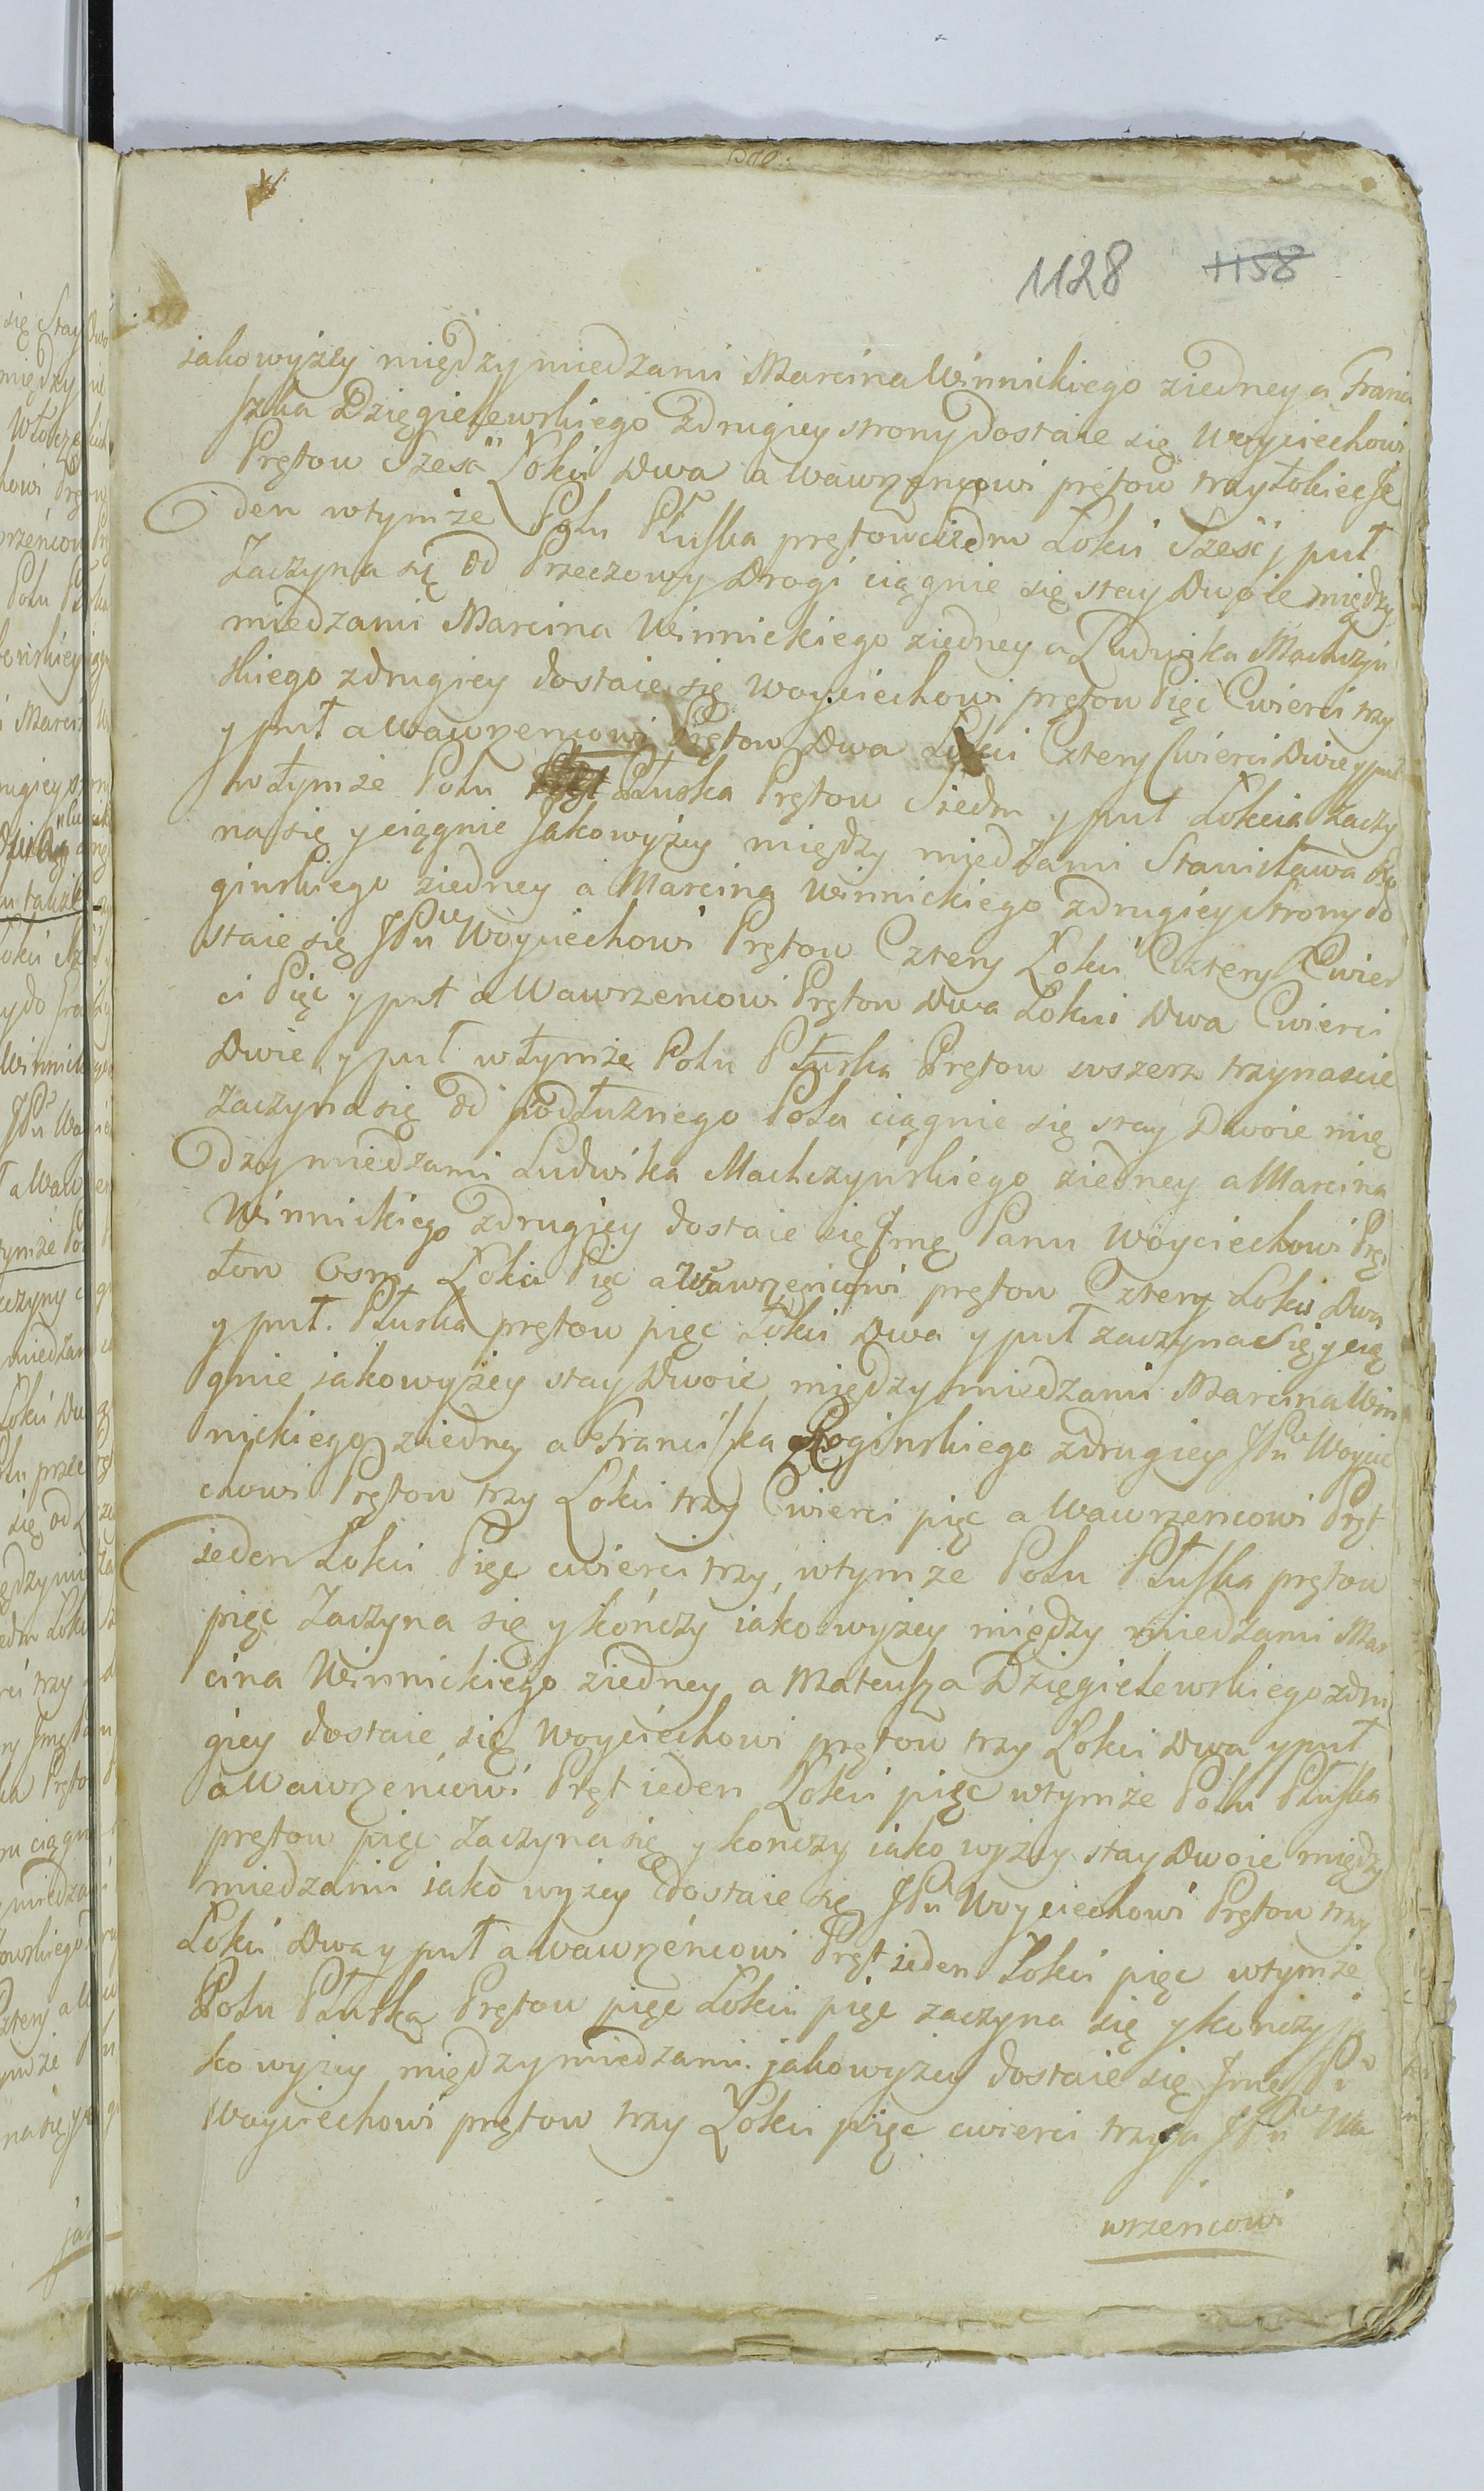 1128 1158
iakowyżey między miedzami Marcina Winnickiego ziedney a Franci
szka Dzięgielewskiego zdrugiey strony dostaie się Woyciechowi
Prętow Szesć Łokci Dwa a Wawrzencowi prętow trzy Łokiec Je
den wtymże Polu Płuska prętow siedm Łokci Sześć y puł
Zaczyna się od Przeczowy Drogi ciągnie się stay Dwoie między
miedzami Marcina Winnickiego ziedney a Ludwika Machczyń
skiego zdrugiey dostaie się Woyciechowi prętow Pięc Cwierci trzy
y puł a Wawrzencowi Prętow Dwa Łokci Cztery Cwierci Dwie y puł
w tymże Polu Płuska Prętow Siedm y puł Łokcia Zaczy
na się y ciągnie Jakowyżey między miedzami Stanisława Ro
ginskiego ziedney a Marcina Winnickiego zdrugiey Strony do
staie się JPu Woyciechowi Prętow Cztery Łokci Cztery Cwier
ci Pięc y puł a Wawrzencowi Prętow Dwa Łokci Dwa Cwierci
Dwie y puł w tymże Polu Płuska Prętow wszerz trzynascie
Zaczyna się od podłużnego Pola ciągnie się stay Dwoie mię
dzy miedzami Ludwika Machczyńskiego ziedney a Marcina
Winnickiego zdrugiey dostaie się Jmę Panu Woyciechowi Prę
tow Osm Łokci Pięc a Wawrzencowi prętow Cztery Łokci Dwa
y puł. Płuska prętow pięc Łokci Dwa y puł zaczyna się y cią
gnie iakowyżey stay Dwoie między miedzami Marcina Win
nickiego ziedney a Franciszka Roginskiego zdrugiey JPu Woycie
chowi Prętow trzy Łokci trzy Cwierci pięc a Wawrzencowi Pręt
ieden Łokci Pięc cwierci trzy, wtymże Polu Płuska prętow
pięc Zaczyna się y kończy iako wyżey między miedzami Mar
cina Winnickiego ziedney a Mateusza Dzięgielewskiego zdru
giey dostaie się Woyciechowi prętow trzy Łokci Dwa y puł
a Wawrzencowi Pręt ieden Łokci pięc wtymże Polu Płuska
prętow pięc Zaczyna się y konczy iako wyżey stay Dwoie między
miedzami iako wyżey dostaie się JPu Woyciechowi Prętow trzy
Łokci Dwa y puł a Wawrzencowi Pręt ieden Łokci pięc wtymże
Polu Płuska Prętow pięc Łokci pięc zaczyna się y konczy ja
ko wyżey między miedzami jakowyżey dostaie się Jmę Pu
Woyciechowi prętow trzy Łokci pięc cwierci trzy a JPu Wa
wrzencowi